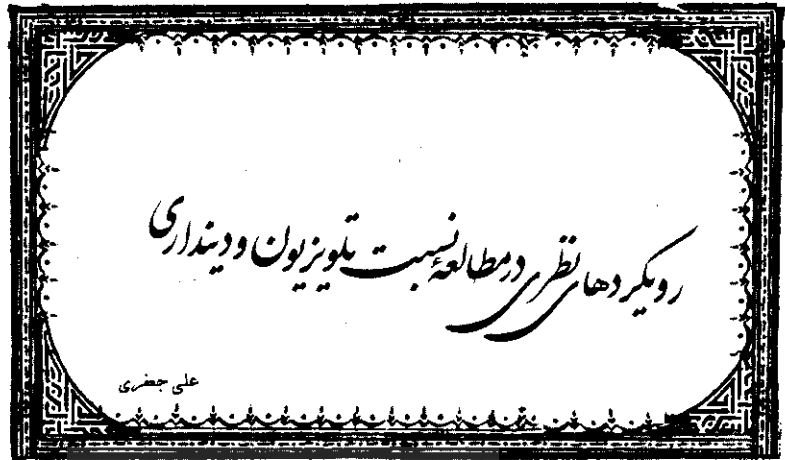 رویکردهای نظری در مطالعهٔ نسبت تلویزیون و دینداری
علی جعفری